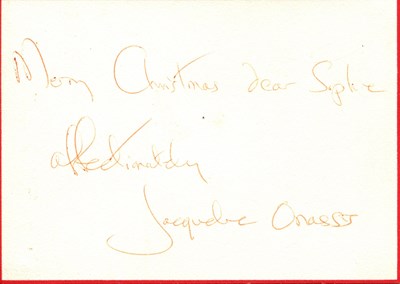 Merry Christmas dear Sophie
affectionately
Jacqueline Onassis